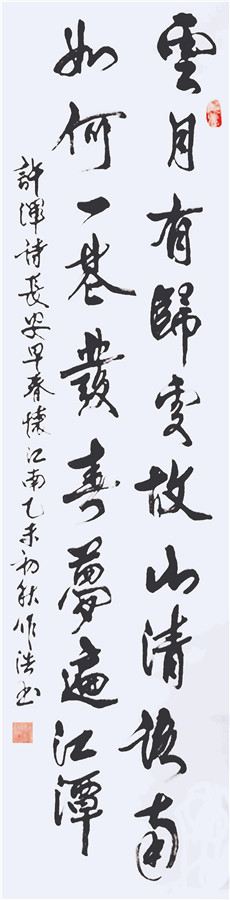 雲月有歸處故山清洛南
如何一花發春夢遍江潭
許渾詩長安早春懷江南乙未初秋作浩书